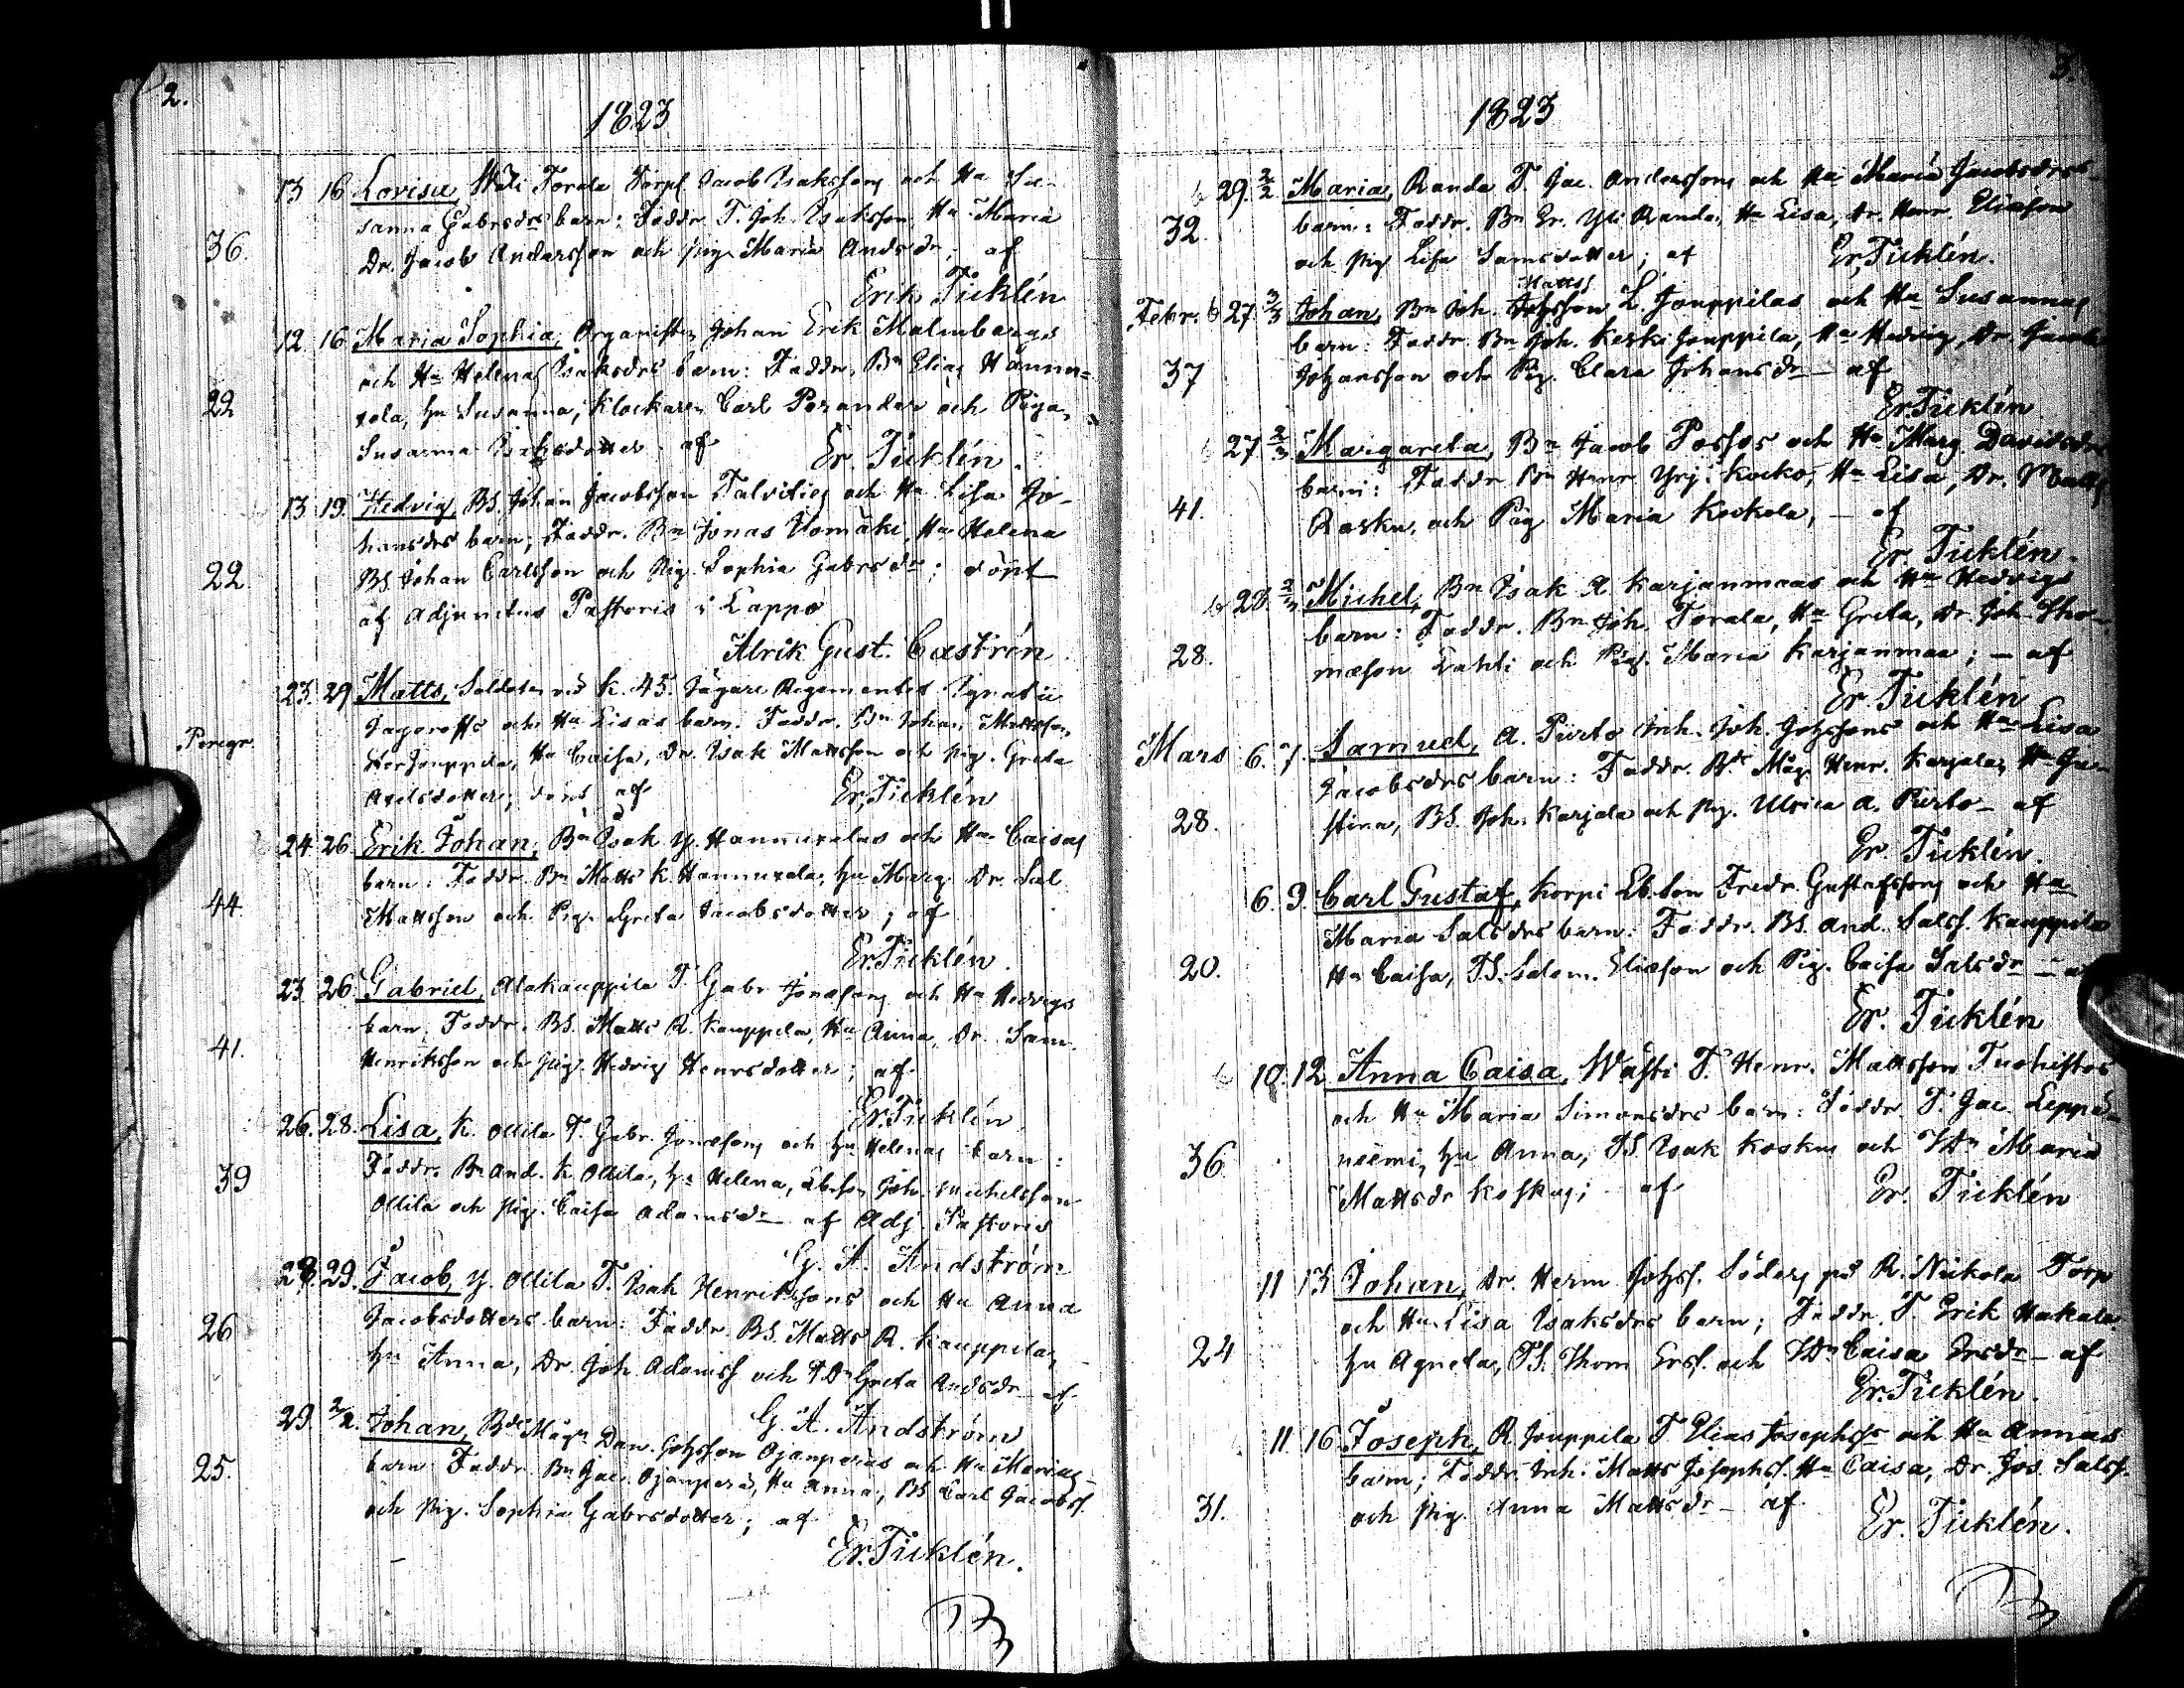 2.
1823
13 16 Lovisa, Wäli Torala Torp. Jacob Isakssons och Hu Su-
sanna Gabrsdrs barn: Faddr. T. Joh. Isaksson, Hu Maria
36. Dr. Jacob Andersson och pig. Maria Andsdr; af
Erik Ticklén
12. 16. Maria Sophia, Organisten Johan Erik Malmbergs
och Hu Helenas Isaksdrs barn: Faddr. Bn Elias Hannu-
22 xela, hu Susanna, Klockaren Carl Porander och Pigan
Susanna dotter af Er. Ticklén.
13. 19. Hedvig, BS. Johan Jacobsson Talvities och Hu Lisa Jo-
hansdrs barn; Faddr. Bn Jonas Uomäki, Hu Helena
22. BS. Johan Carlsson och Pig. Sophia Gabrsdr; döpt
af Adjunctus Pastoris i Lappo
Ulrik Gust. Castrén
23. 29 Matts, Soldaten vid K. 45. Jägare Regementet Ignatii
Jagoroffs och Hu Lisas barn. Faddr. Bn Johan Mattsson
Peregr. Storjouppila, Hu Caisa, Dr. Isak Mattsson och pig. Greta
Axelsdotter; döpt af Er. Ticklén
24. 26. Erik Johan, Bn Isak Y. Hannuxelas och Hu Caisas
barn: Faddr. Bn Matts K. Hannuxela, hu Marg. Dr. Sal.
44. Mattsson och Pig. Greta Jacobsdotter; af
Er. Ticklén.
23. 26. Gabriel, Alakauppila T. Gabr. Jonasons och Hu Hedvigs
barn. Faddr. BS. Matts R. Kauppila, Hu Anna, Dr. Sam.
41. Henriksson och pig. Hedvig Henrsdotter; af
Er. Ticklén
26. 28. Lisa, K. Ollila T. Gabr. Jonasons och hu Helenas barn:
39 Faddr. Bn And. K. Ollila, hu Helena, Joh. Michelsson
Ollila och Pig. Caisa Adamsdr af Adj. Pastoris
G. A. Andström
28. 29. Jacob, Y. Ollila T. Isak Henrikssons och Hu Anna
Jacobsdotters barn: Faddr. BS. Matts R. Kauppila,
26 hu Anna, Dr. Joh. Adamss. och TDr Greta Andsdr af
G. A. Andström
29. 2/2. Johan, Bds Mågn Dan. Johsson Ojanperäs och Hu Marias
25. barn: Faddr. Bn Jac. Ojanperä, Hu Anna, BS Carl Jacobss.
och pig. Sophia Gabrsdotter; af
Er. Ticklén.
3.
1823
29. 2/2 Maria, Randa T. Jac. Anderssons och Hu Maria Jacobsdrs
32. barn: Faddr. Bn Er. Yli Randa, Hu Lisa, Dr. Henr. Eliason
och pig Lisa Samsdotter; af Er. Ticklén.
Mattss
Febr. 27. 3/3 Johan, Bn Joh. Johsson L. Jouppilas och Hu Susannas
barn: Faddr. Bn Joh. Keski Jouppila, Hu Hedvig, Dr. Jacob
37 Johansson och Pig. Clara Johansdr – af
Er. Ticklén
27. 2/3 Margareta, Bn Jacob Passos och Hu Marg. Davidsdrs
barn: Faddr. Bn Henr. Yrj. Kocko, Hu Lisa, Dr. Matts
41. Rasku, och Pig Maria Kockola, – af
Er. Ticklén.
28. 2/3 Michel, Bn Isak A. Karjanmaas och Hu Hedvigs
barn: Faddr. Bn Joh. Torala, Hu Greta, Dr. Joh. Tho-
28. mason Lahti och Pig. Maria Karjanmaa; – af
Er. Ticklén
Mars 6. 7. Samuel, A. Purto Inh. Joh. Johssons och Hu Lisa
Jacobsdrs barn: Faddr. Bds Måg Henr. Karjala, Hu Ju-
28. stina, BS. Joh. Karjala och Pig. Ulrica A. Purto – af
Er. Ticklén.
6. 9. Carl Gustaf, Korpi Lb. Son Fredr. Gustafssons och Hu
Maria Salsdrs barn: Faddr. BS. And. Salss. Kauppila
20. Hu Caisa, TS. Salom. Eliason och Pig. Caisa Salsdr – af
Er. Ticklén
10. 12 Anna Caisa, Wästi T. Henr. Mattsson Tuohistos
och Hu Maria Simonsdrs barn: Faddr. T. Jac. Leppä-
36 niemi, hu Anna, TS. Isak Koskus och TDr Maria
Mattsdr Koskus; af Er. Ticklén
11 13 Johan, Dr. Herm. Johss. Söders på R. Nikola Torp
och Hu Lisa Isaksdrs barn; Faddr. T. Erik Hakala,
24 hu Agneta, TS. Thom Erss. och TDr Caisa Ersdr – af
Er. Ticklén.
11 16 Joseph, R Jouppila T. Elias Josephss och Hu Annas
barn; Faddr. Inh. Matts Josephss. Hu Caisa, Dr. Jos. Salss.
31. och pig. Anna Mattsdr – af
Er. Ticklén.